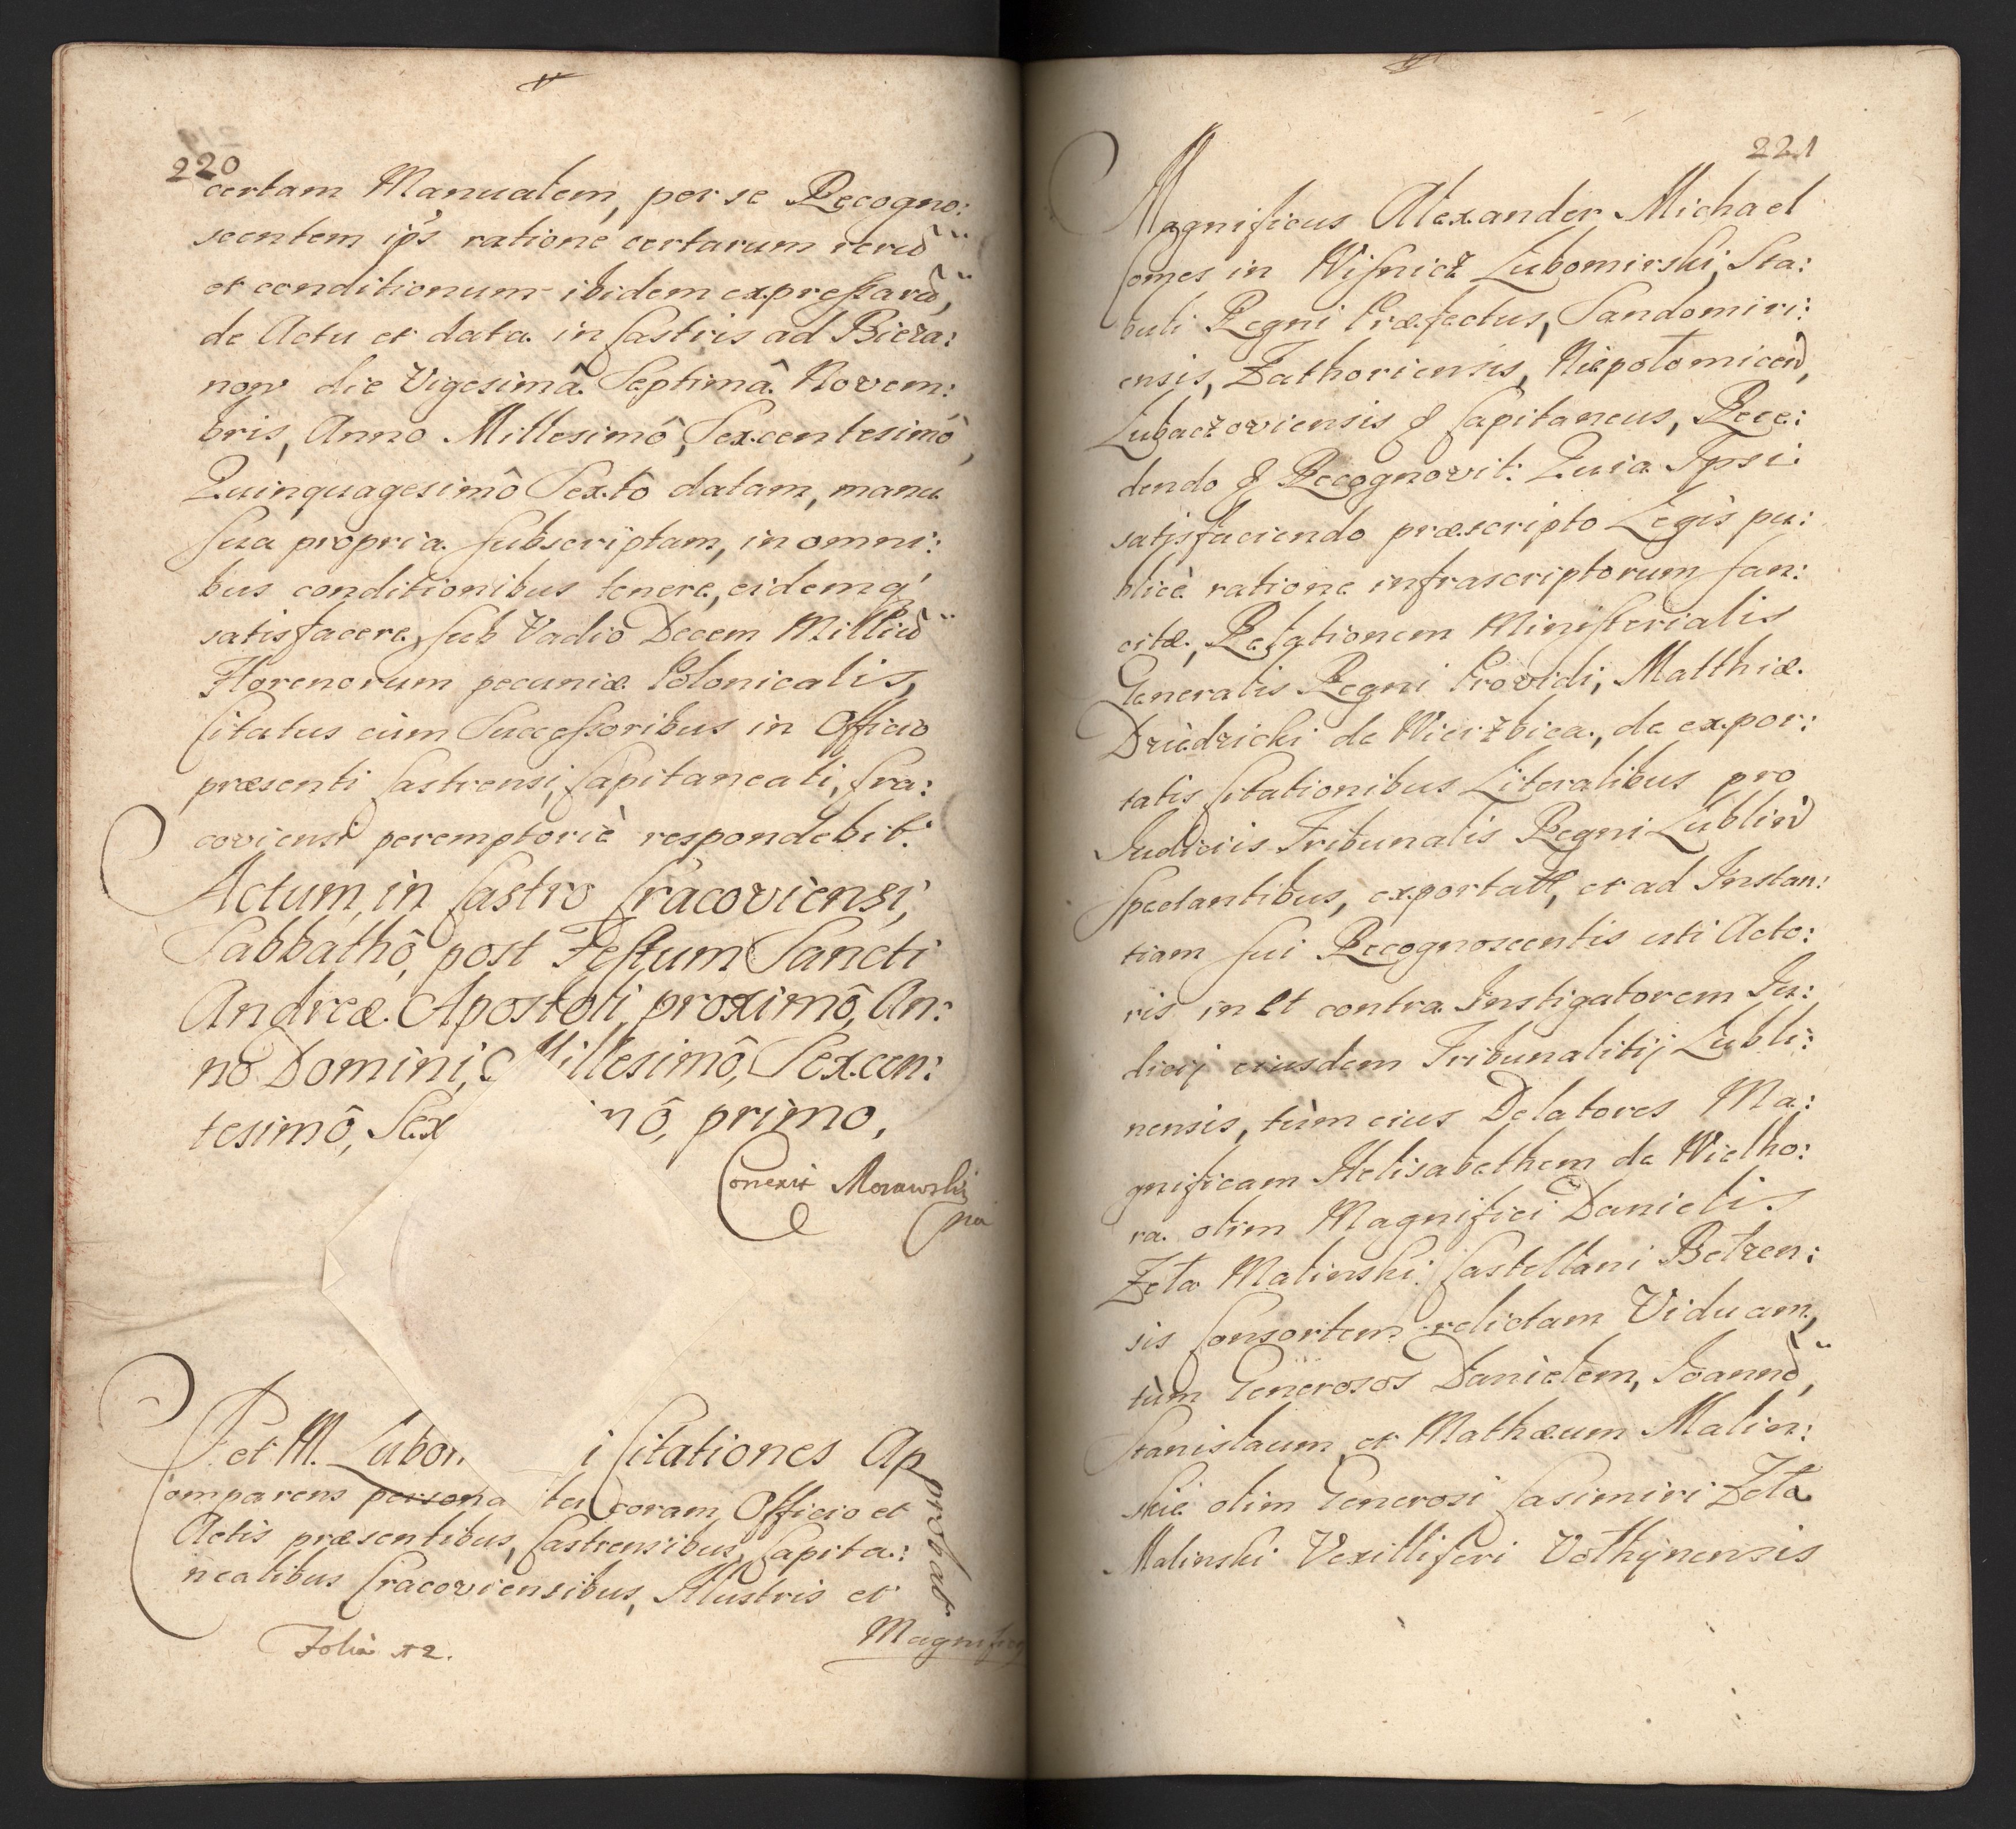 220
certam Manualem, per se Recogno:
scentem ips ratione certarum rerũ
et conditionum ibidem expressarũ,
de Actu et data in Castris ad Bieza:
now die Vigesimâ Septimâ Novem:
bris, Anno Millesimô, Sexcentesimô,
Quinquagesimô Sextô datam, manu
Sua propria subscriptam, in omni:
bus conditionibus tenere, eidemq́
satisfacere, sub Vadio Decem Milliũ
Florenorum pecuniæ Polonicalis,
Citatus cùm Successoribus in Officio
præsenti Castrensi, Capitaneali, Cra:
coviensi peremptoriè respondebit.
Actum, in Castro Cracoviensi,
Sabbathô, post Festum Sancti
Andreæ Apostoli, proximô, An:
no Domini, Millesimô, Sexcen:
tesimô, Sex mô, primo,
Conexit Morawski
mp
I. et M. Lubom i Citationes Ap
probat
Comparens persona ter coram Officio et
Actis præsentibus, Castrensibus, Capita:
nealibus Cracoviensibus, Illustris et
Folia 12.
Magnificus
221
Magnificus Alexander Michael
Comes in Wisnicz Lubomirski, Sta:
buli Regni Præfectus, Sandomiri:
ensis, Zathoriensis, Niepolomiceñ,
Lubaczoviensis & Capitaneus, Rece:
dendo & Recognovit: Quia Ipsi
satisfaciendo præscripto Legis pu:
blicè ratione infrascriptorum san:
citæ, Relationem Ministerialis
Generalis Regni Providi, Matthiæ
Dziedzicki de Wierzbica, de expor:
tatis Citationibus Literalibus pro
Judiciis Tribunalis Regni Lublin̄
Spectantibus, exportatt, et ad Instan:
tiam sui Recognoscentis uti Acto:
ris in et contra Instigatorem Ju:
dicij eiusdem Tribunalitij Lubli:
nensis, tùm eius Delatores Ma:
gnificam Helisabetham de Wielho:
ra olim Magnifici Danielis
Zeta Malinski Castellani Betzen:
sis Consortem relictam Viduam,
tùm Generosos Danielem, Joannẽ,
Stanislaum et Mathæum Malin:
skie olim Generosi Casimiri Zeta
Malinski Vexilliferi Volhynensis